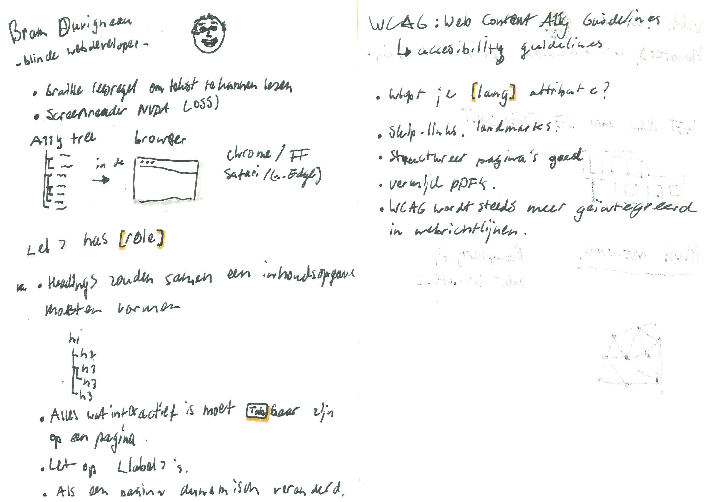 Bram Duvigneau
- blinde webdeveloper -
• Braille leesregel om tekst te kunnen lezen
• Screenreader NVDA (OSS)
A11y tree
browser
in de
→
chrome / FF
Safari / (...Edge)
Let > has [role]
• Headings zouden samen een inhoudsopgave
moeten vormen
h1
h2
h3
h3
h3
• Alles wat interactief is moet Tab baar zijn
op een pagina.
• Let op <label>'s.
• Als een pagina dynamisch veranderd,
WCAG: Web Content A11y Guidelines
↳ accesibility guidelines
• Klopt je [lang] attribute?
• Skip-links, landmarks?
• Structureer pagina's goed
• vermijd PDFs.
• WCAG wordt steeds meer geïntegreerd
in webrichtlijnen.